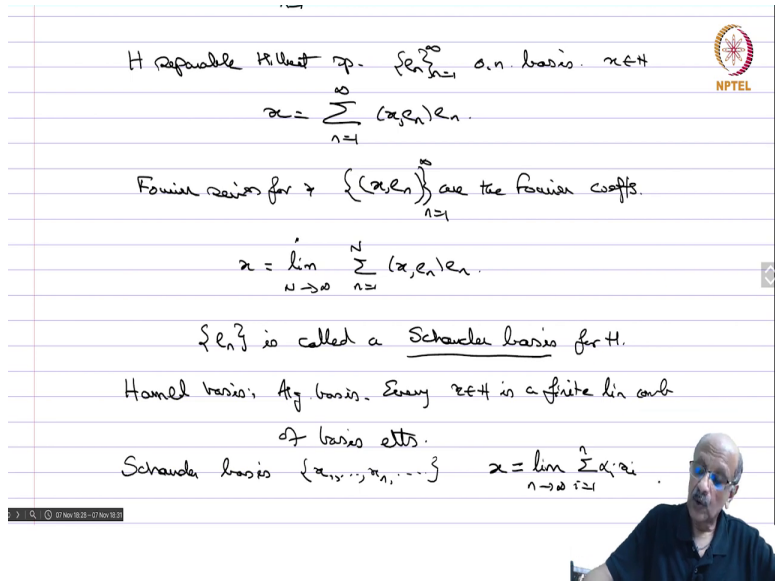 H separable Hilbert sp. {eₙ}ₙ₌₁^∞ o.n. basis. x∈H
NPTEL
x = ∑ₙ₌₁^∞ (x,eₙ)eₙ.
Fourier series for x {(x,eₙ)}ₙ₌₁^∞ are the Fourier coeffs.
x = lim_{N→∞} ∑ₙ₌₁^N (x,eₙ)eₙ.
{eₙ} is called a Schauder basis for H.
Hamel basis; Alg. basis. Every x∈H is a finite lin comb
of basis elts.
Schauder basis {x₁,...,xₙ,...} x = lim_{n→∞} ∑ᵢ₌₁ⁿ αᵢxᵢ.
07 Nov 18:28 – 07 Nov 18:31